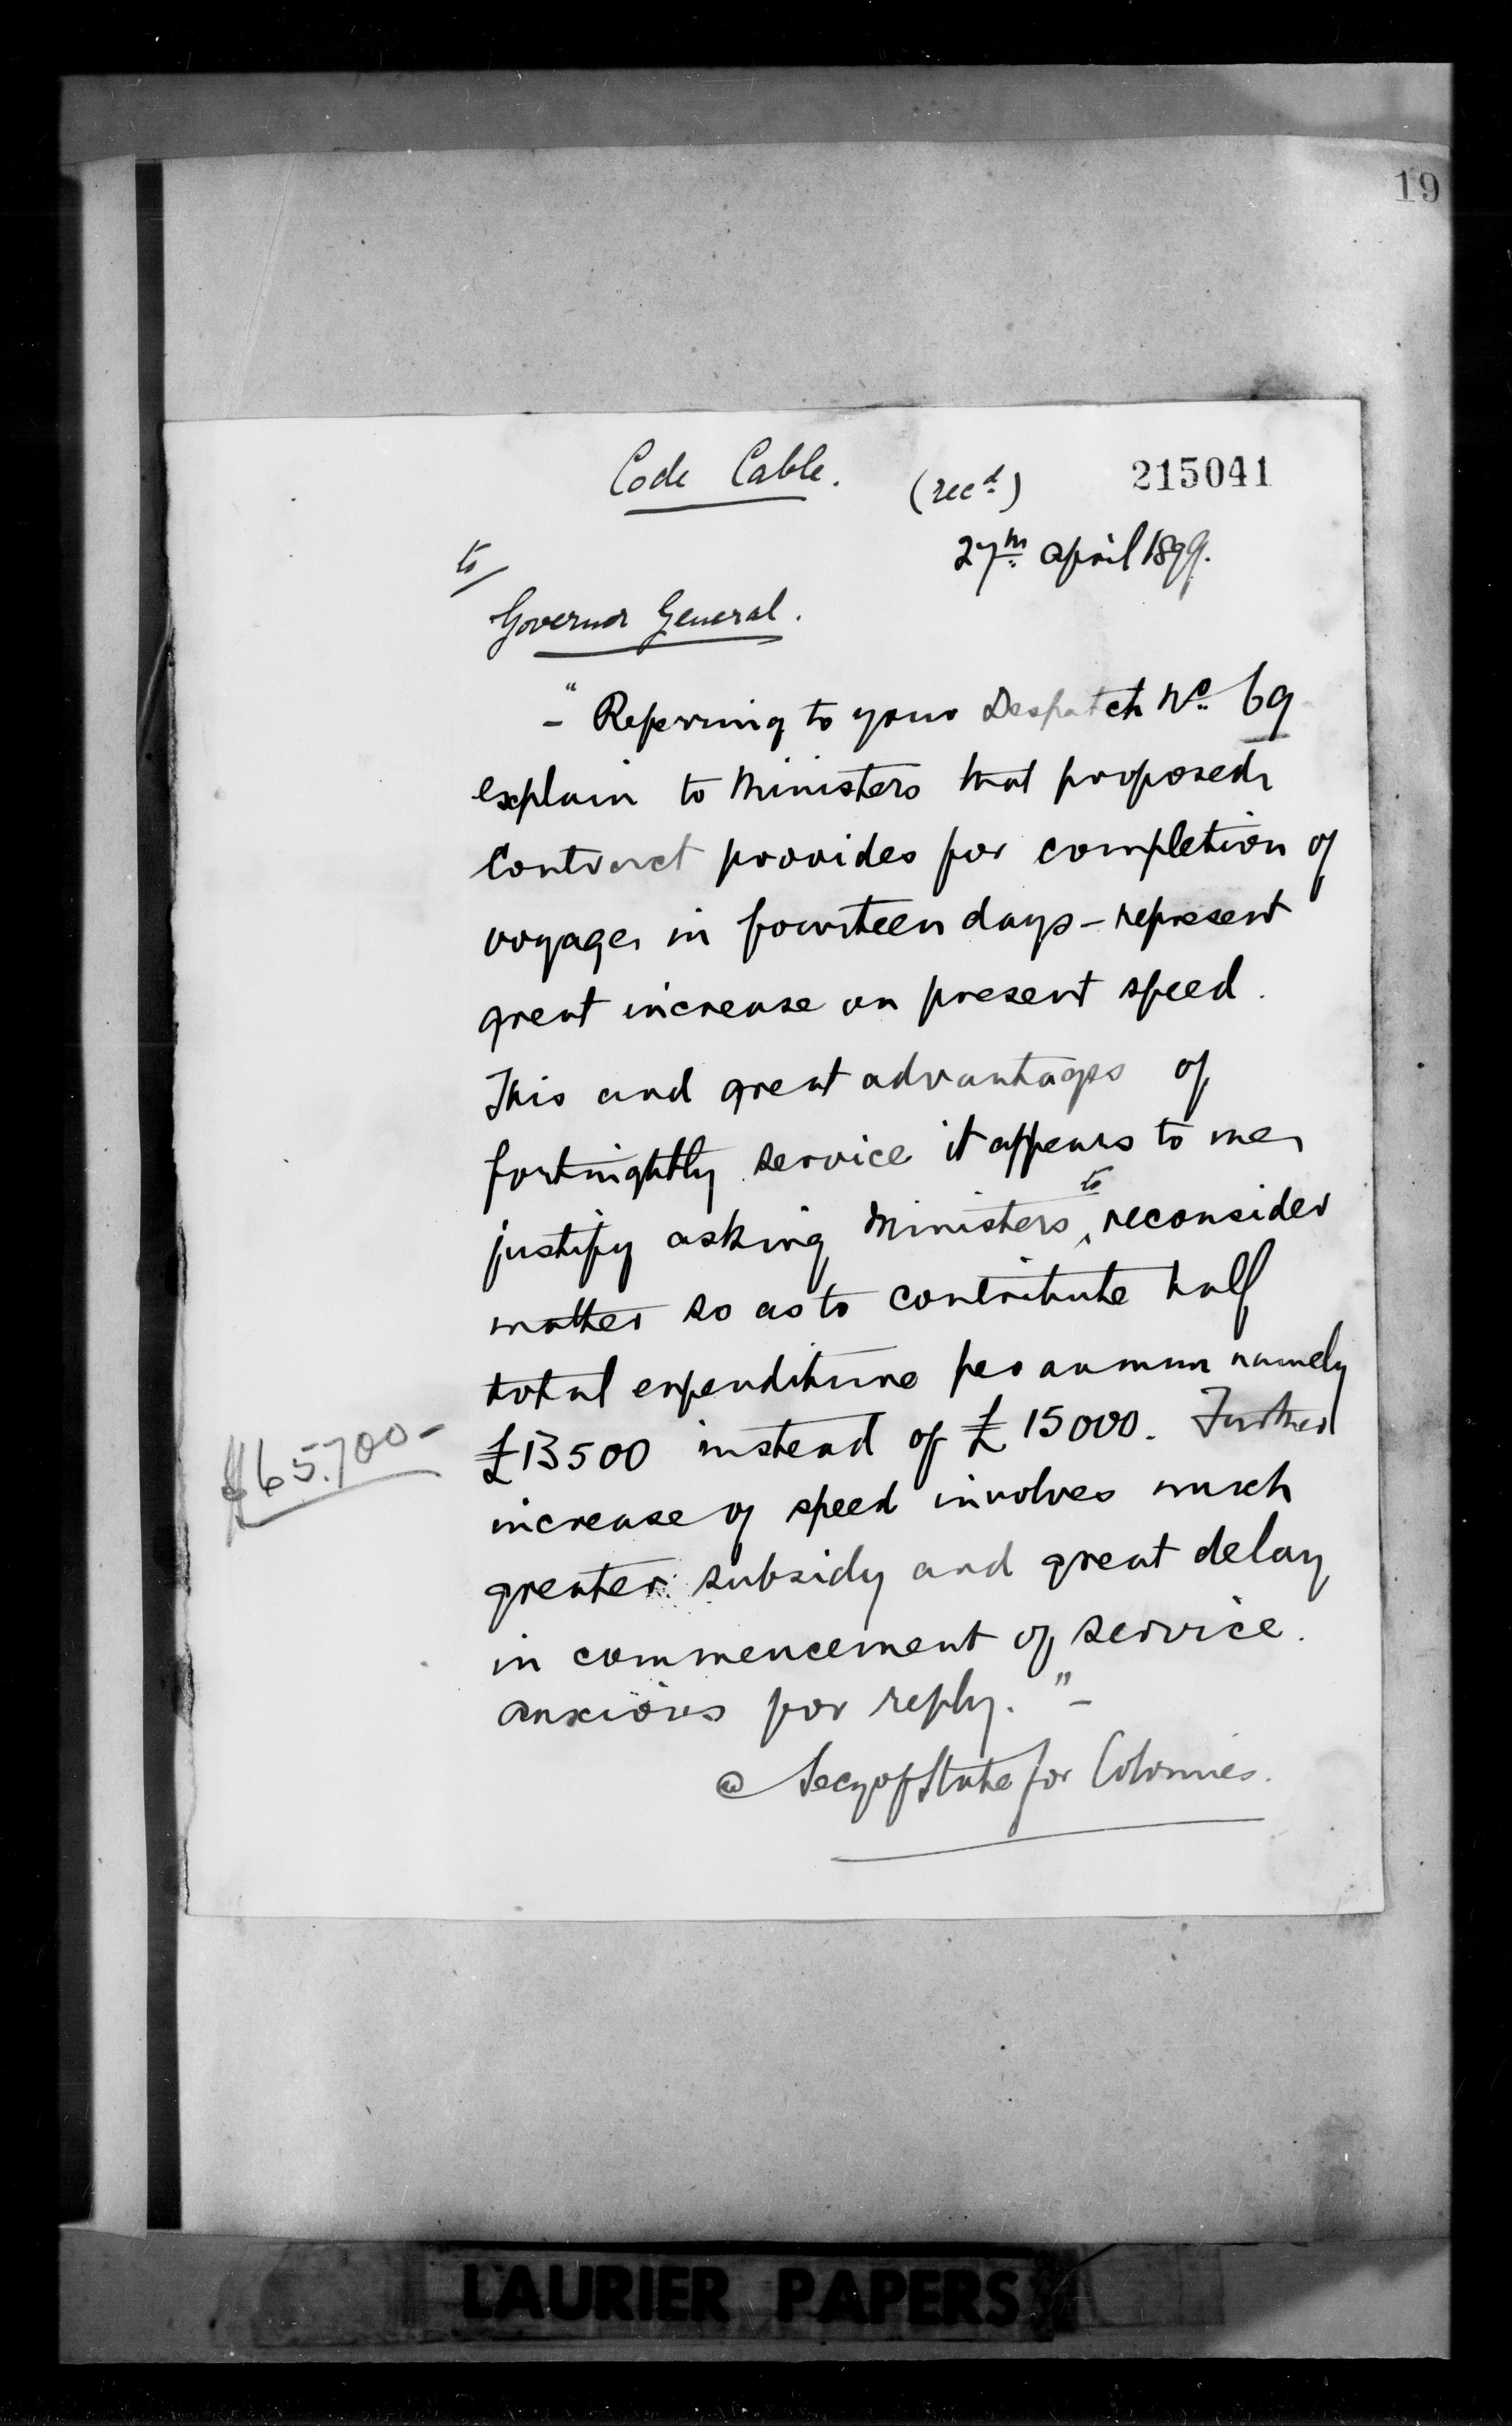 19
Code Cable. (recd) 215041
27th April 1899.
to/
Governor General.
"- Referring to your Despatch No. 69
explain to Ministers that proposed
Contract provides for completion of
voyage in fourteen days - represent
great increase on present speed.
This and great advantages of
fortnightly service it appears to me
justify asking Ministers to reconsider
matter so as to contribute half
total expenditure per annum namely
£13500 instead of £15000. Further
$65.700-
increase of speed involves much
greater subsidy and great delay
in commencement of service.
Anxious for reply."-
@ Secy of State for Colonies.
LAURIER PAPERS